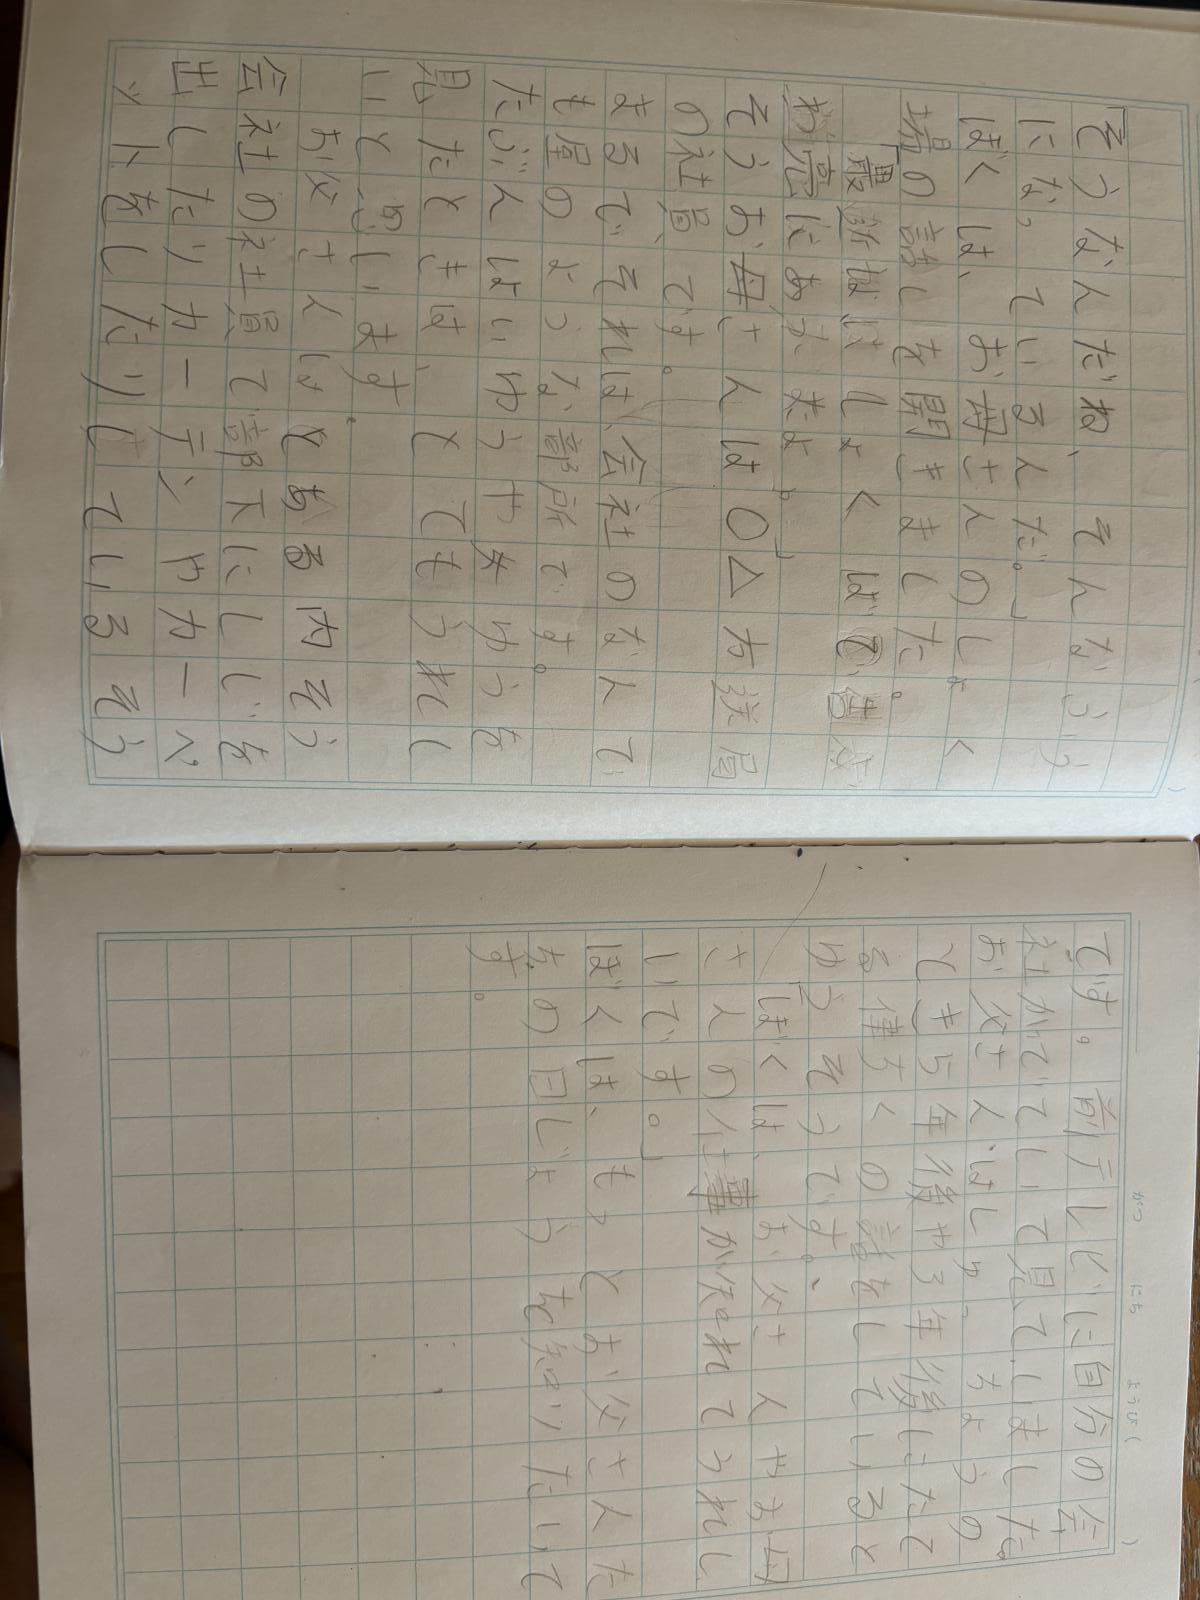 「そうなんだね、そんなふう
になっているんだ。」
ぼくは、お母さんのしょく
場の話しを聞きました。
「最新なはしょくばで書か
わ完にあふよ。」
そうお母さんは○△方送局
の社員です。
まるでそれは、会社のなんで
も屋のような部所です。
たぶんはいゆうや女ゆうを
見たときは、とてもうれし
いと思います。
お父さんはとある内そう
会社の社員で部下にしじを
出したりカーテンやカーペ
ットをしたりしているそう
です。前テレビに自分の会
社がでていて見ていました。
お父さんはしゅっちょうの
てき5年後や3年後にたて
る建ちくの話をしていると
ゆうそうです。
「ぼくは、お父さんやお母
さんの仕事が知れてうれし
いです。」
ぼくは、もっとお父さんた
ちの日じょうを知りたいで
す。
がつ にち ようび(　)